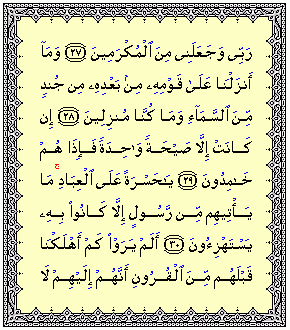 رَبِّى وَجَعَلَنِى مِنَ ٱلْمُكْرَمِينَ ﴿٢٧﴾ وَمَآ
أَنزَلْنَا عَلَىٰ قَوْمِهِۦ مِنۢ بَعْدِهِۦ مِن جُندٍ
مِّنَ ٱلسَّمَآءِ وَمَا كُنَّا مُنزِلِينَ ﴿٢٨﴾ إِن
كَانَتْ إِلَّا صَيْحَةً وَٰحِدَةً فَإِذَا هُمْ
خَٰمِدُونَ ﴿٢٩﴾ يَٰحَسْرَةً عَلَى ٱلْعِبَادِ ۚ مَا
يَأْتِيهِم مِّن رَّسُولٍ إِلَّا كَانُوا۟ بِهِۦ
يَسْتَهْزِءُونَ ﴿٣٠﴾ أَلَمْ يَرَوْا۟ كَمْ أَهْلَكْنَا
قَبْلَهُم مِّنَ ٱلْقُرُونِ أَنَّهُمْ إِلَيْهِمْ لَا